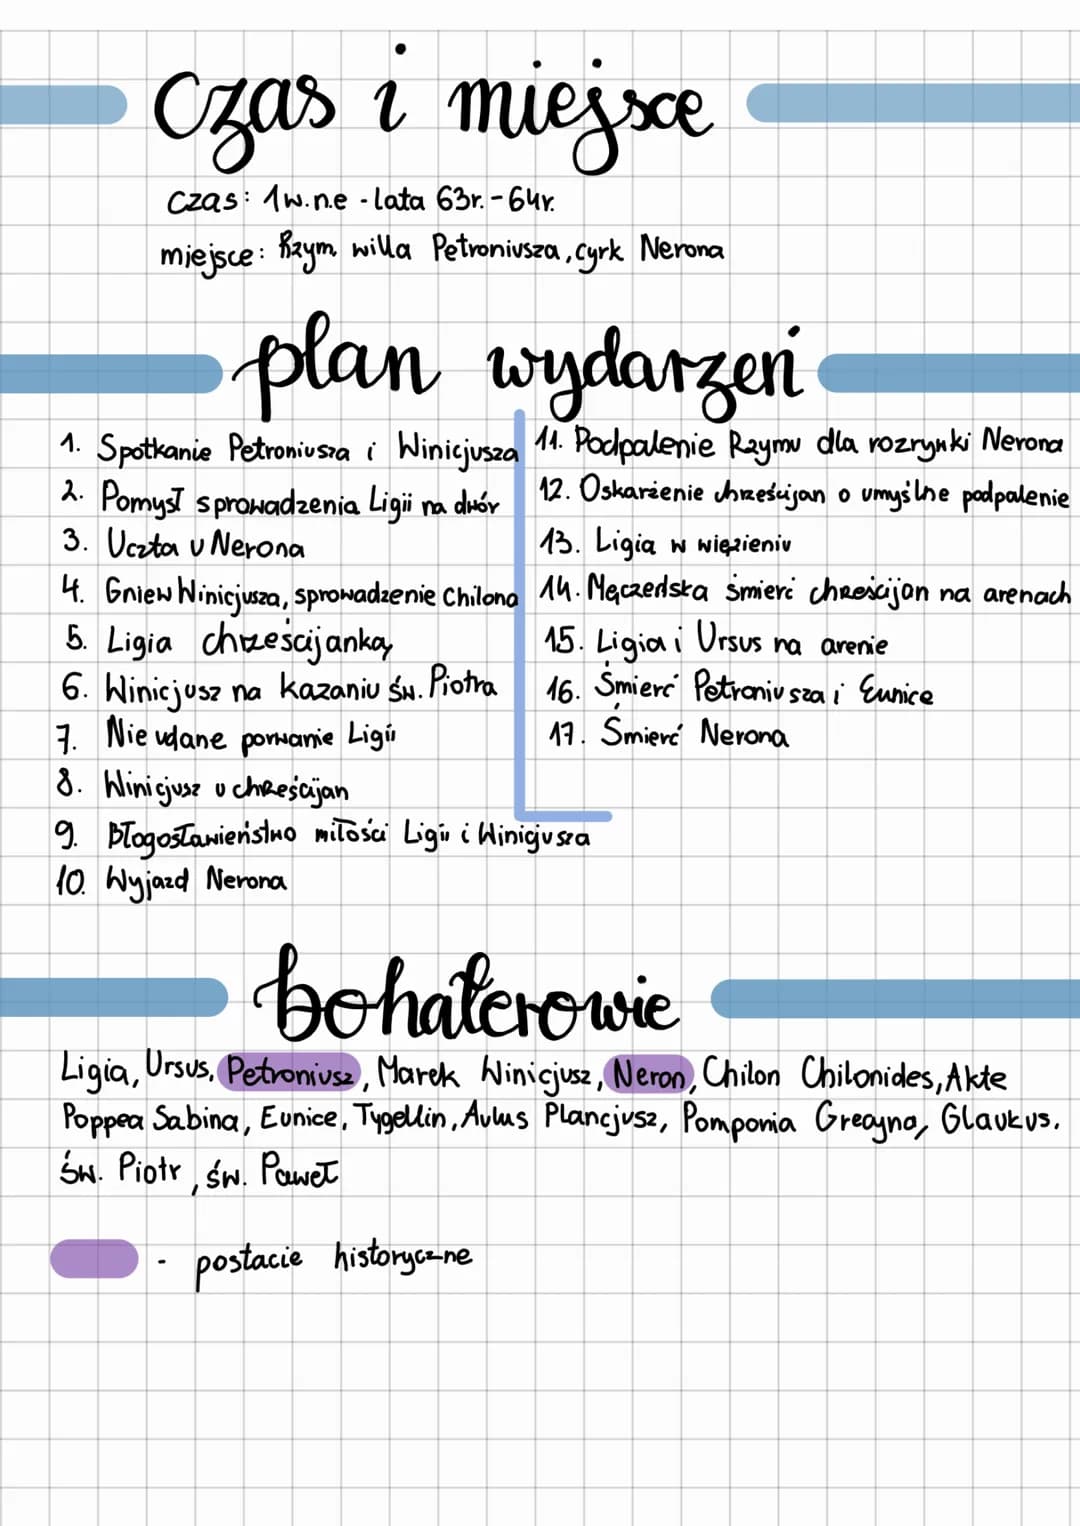 Czas i miejsce
czas: 1w.n.e - lata 63r.-64r.
miejsce: Rzym, willa Petroniusza, cyrk Nerona
plan wydarzeń
1. Spotkanie Petroniusza i Winicjusza
2. Pomysł sprowadzenia Ligii na dwór
3. Uczta u Nerona
4. Gniew Winicjusza, sprowadzenie Chilona
5. Ligia chrześcijanką
6. Winicjusz na kazaniu św. Piotra
7. Nie udane porwanie Ligii
8. Winicjusz u chrześcijan
9. Błogosławieństwo miłości Ligii i Winicjusza
10. Wyjazd Nerona
11. Podpalenie Rzymu dla rozrynki Nerona
12. Oskarżenie chrześcijan o umyślne podpalenie
13. Ligia w więzieniu
14. Męczeńska śmierć chrześcijan na arenach
15. Ligia i Ursus na arenie
16. Śmierć Petroniusza i Eunice
17. Śmierć Nerona
bohaterowie
Ligia, Ursus, Petroniusz, Marek Winicjusz, Neron, Chilon Chilonides, Akte
Poppea Sabina, Eunice, Tygellin, Aulus Plancjusz, Pomponia Grecyna, Glaukus,
św. Piotr, św. Paweł
- postacie historyczne